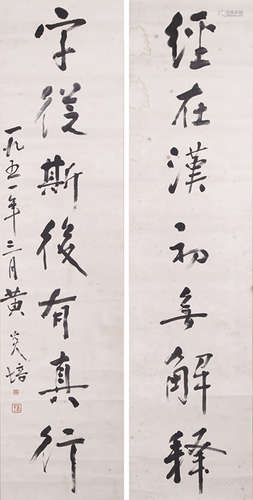 經在漢初無解釋
字從斯後有真行
一九五一年三月黃炎培